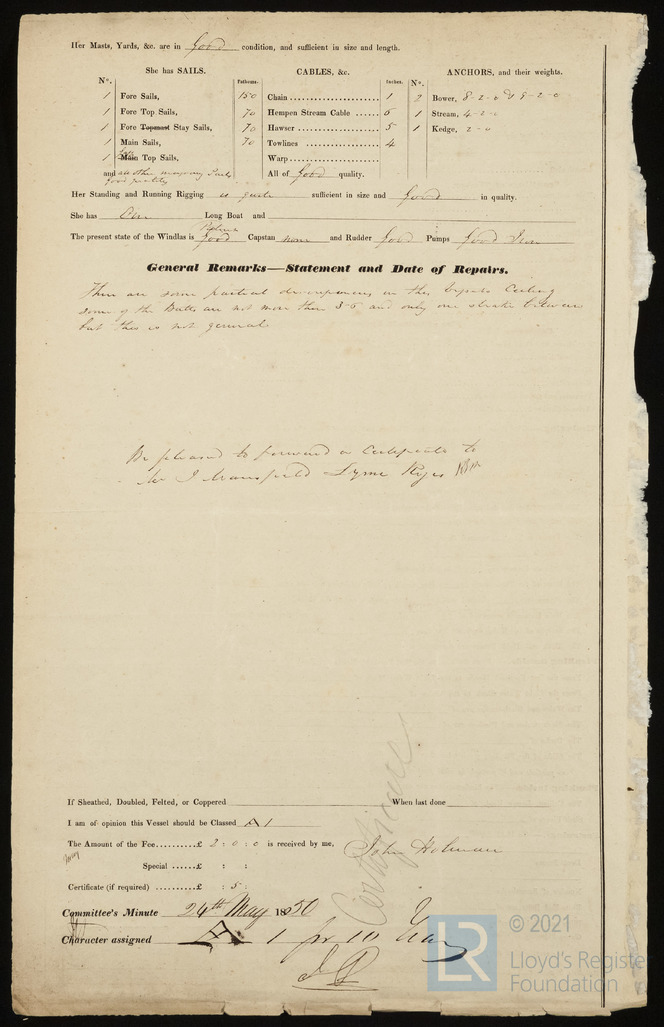 Her Masts, Yards, &c. are in Good condition, and sufficient in size and length.
She has SAILS. CABLES, &c. ANCHORS, and their weights.
N°. Fathoms. Inches. N°.
1 Fore Sails, 150 Chain 1 2 Bower, 8-2-0 & 9-2-0
1 Fore Top Sails, 70 Hempen Stream Cable 1 Stream, 4-2-0
1 Fore Topmast Stay Sails, 70 Hawser 5 1 Kedge, 2-0
1 Main Sails, 70 Towlines 4
1 Main Top Sails, Warp
and all other All of Good quality.
good quality
Her Standing and Running Rigging is good sufficient in size and Good in quality.
She has One Long Boat and
The present state of the Windlas is Good Capstan none and Rudder Good Pumps Good Iron
General Remarks—Statement and Date of Repairs.
There are some partial in the Ceiling
some of the Butts are not more than 3-5 and only one strake between
but this is not general
Be pleased to forward a Certificate to
Mr J Mansfield Lyme Regis
Certificate
If Sheathed, Doubled, Felted, or Coppered When last done
I am of opinion this Vessel should be Classed A1
The Amount of the Fee £ 2 : 0 : 0 is received by me, John Holman
Special £ : :
Certificate (if required) £ : 5 :
Committee's Minute 24th May 1850
Character assigned A 1 for 10 Years
LR
© 2021
Lloyd's Register
Foundation